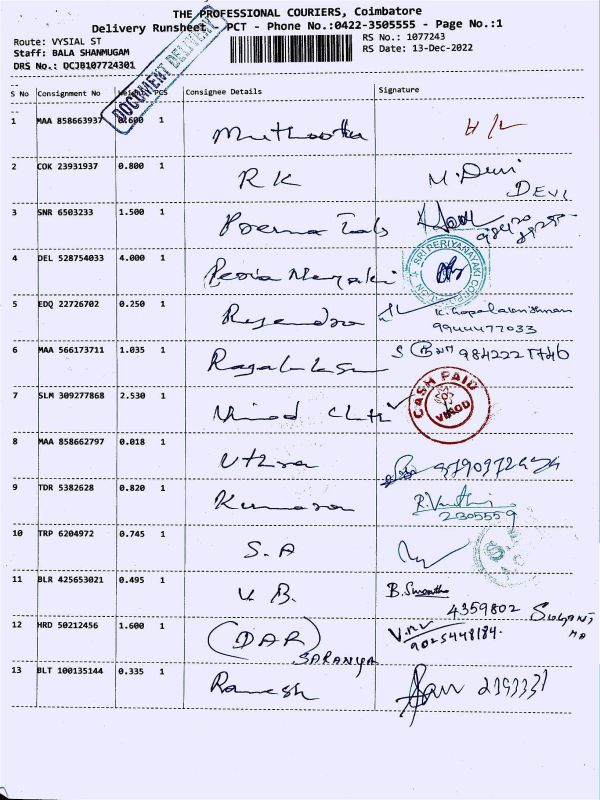 THE PROFESSIONAL COURIERS, Coimbatore
Delivery Runsheet PCT - Phone No.:0422-3505555 - Page No.:1
Route: VYSIAL ST
RS No.: 1077243
Staff: BALA SHANMUGAM
RS Date: 13-Dec-2022
DRS No.: DCJB107724301
DOCUMENT DELIVERY
S No Consignment No Weight PCS Consignee Details Signature
1 MAA 858663937 0.600 1
2 COK 23931937 0.800 1 RK M. Devi
DEVI
3 SNR 6503233 1.500 1
4 DEL 528754033 4.000 1 SRI PERIYANAYAKI CORPORATION
5 EDQ 22726702 0.250 1 Rajendra K. Gopalakrishnan
9944477033
6 MAA 566173711 1.035 1
7 SLM 309277868 2.530 1 CASH PAID
VINOD
8 MAA 858662797 0.018 1 Uthra
9 TDR 5382628 0.820 1 Kumaran
2305559
10 TRP 6204972 0.745 1 S.A
11 BLR 425653021 0.495 1 V.B.
4359802
12 HRD 50212456 1.600 1 (DAR)
SARANYA 9025448184.
13 BLT 100135144 0.335 1 Ramesh